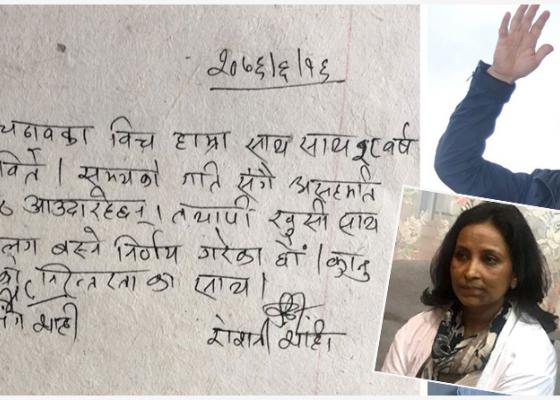 २०७६/६/१६
विच हाम्रा साथ साथ २८ वर्ष
विते । समयको गति संगै असहमति
आउदारहेछन् । तथापी खुसी साथ
लग बस्ने निर्णय गरेका छौं । कानु
निरन्तरता का साथ ।
शाही
रोशनी शाही